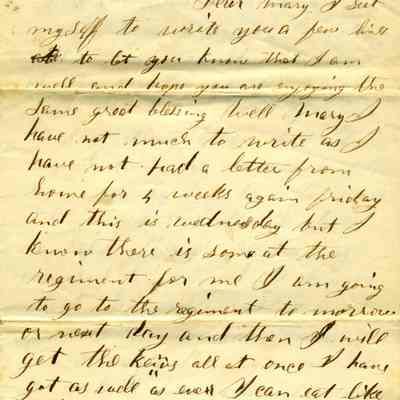 Dear Mary I set
myself to write you a few lines
to let you know that I am
well and hope you are enjoying the
same great blessing well Mary I
have not much to write as I
have not had a letter from
home for 4 weeks again friday
and this is wednesday but I
know there is some at the
regiment for me I am going
to go to the regiment to morrow
or next day and then I will
get the all at once I have
got as well as ever I can eat like